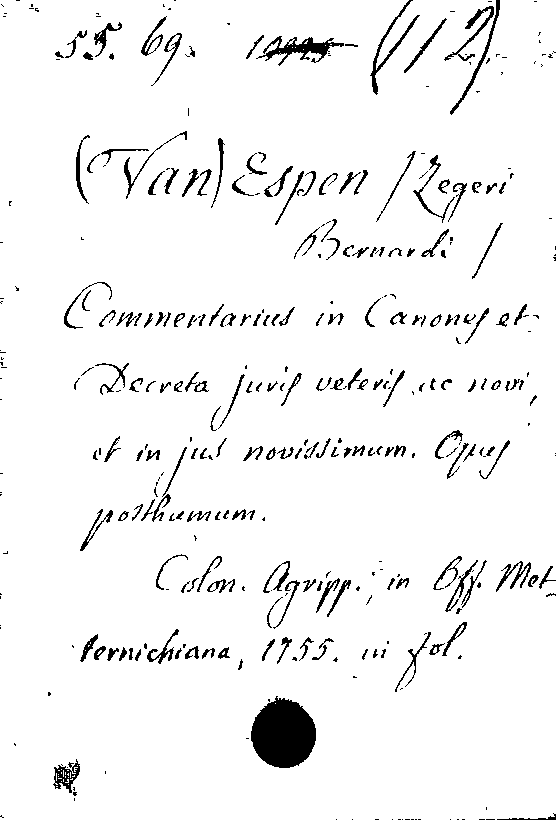 55. 69. (112)
(Van) Espen / Zegeri
Bernardi /
Commentarius in Canones et
Decreta juris veteris ac novi,
et in jus novissimum. Opus
posthumum.
Colon. Agripp., in Off. Met-
ternichiana, 1755. in fol.